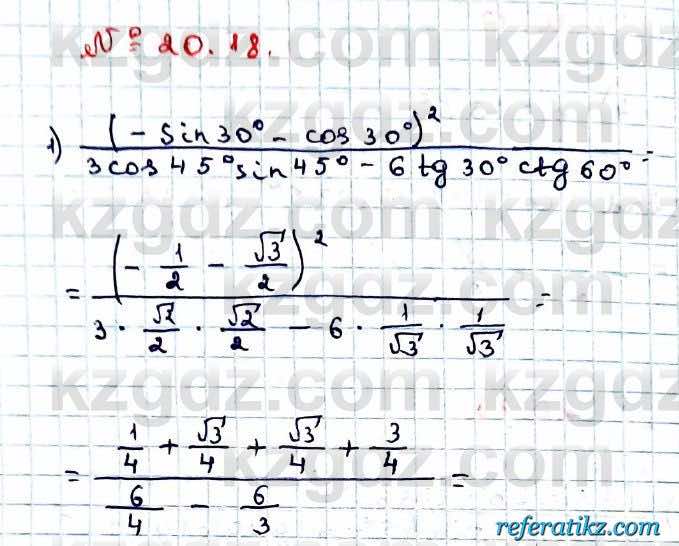 № 20.18.
1) (- sin30° - cos30°)² / (3cos45°sin45° - 6tg30° ctg60°) =
= (- 1/2 - √3/2)² / (3 · √2/2 · √2/2 - 6 · 1/√3 · 1/√3) =
= (1/4 + √3/4 + √3/4 + 3/4) / (6/4 - 6/3) =
kzgdz.com
referatikz.com